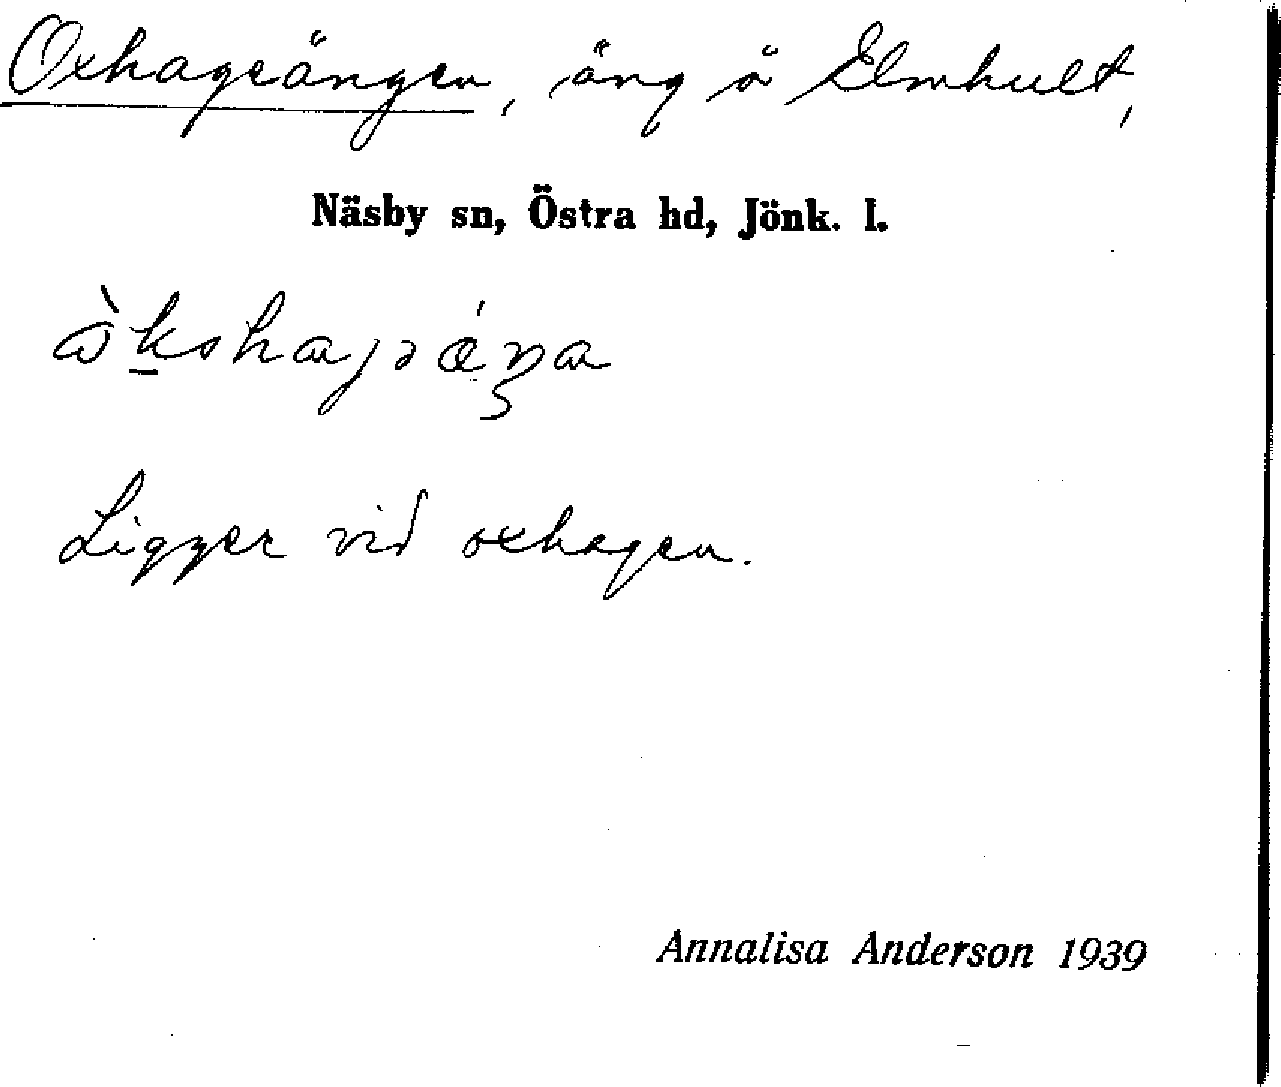 Oxhageängen, äng å Elmhult,
Näsby sn, Östra hd, Jönk. l.
Ligger vid oxhagen.
Annalisa Anderson 1939